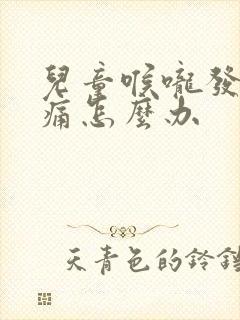 兒童喉嚨發
痛怎麼办
天青色的鈴鐺